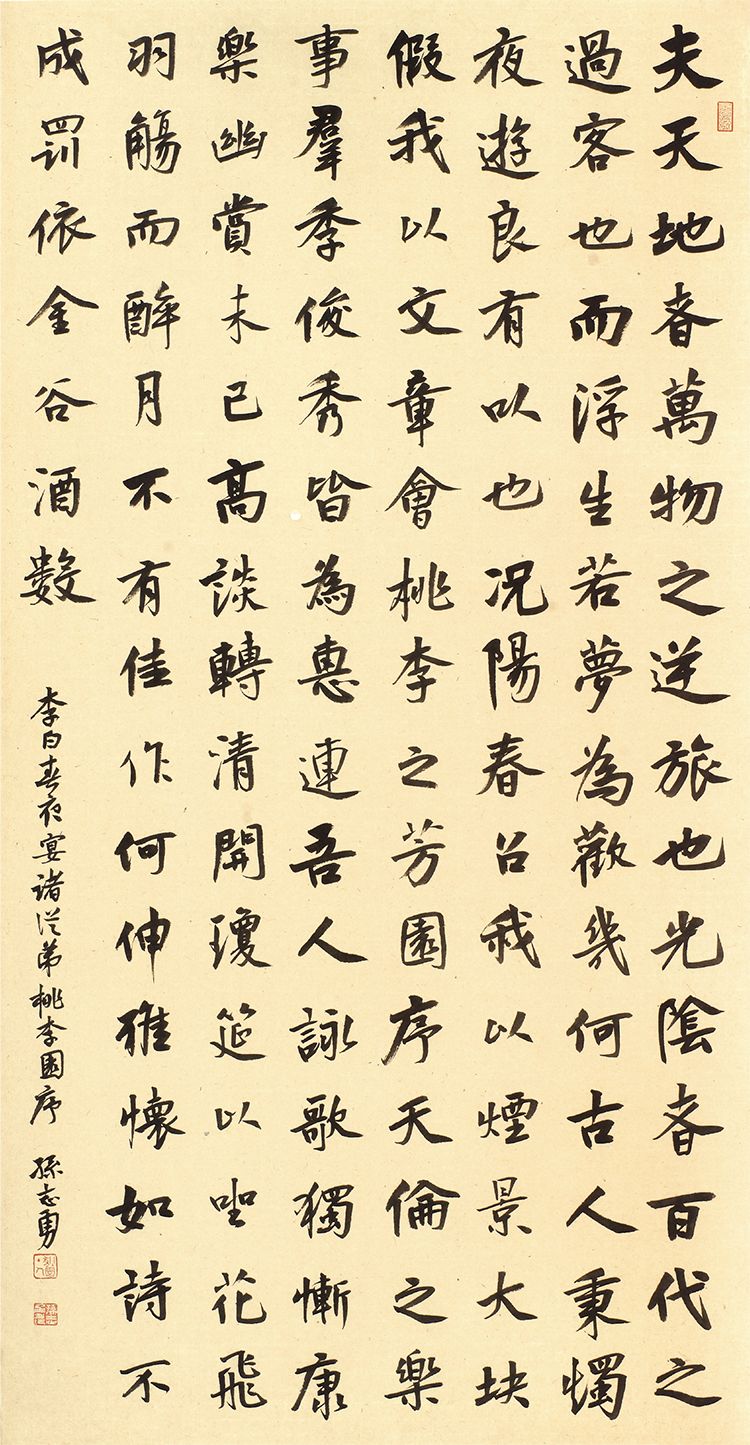 夫天地者萬物之逆旅也光陰者百代之
過客也而浮生若夢為歡幾何古人秉燭
夜遊良有以也况陽春召我以煙景大块
假我以文章會桃李之芳園序天倫之樂
事羣季俊秀皆為惠連吾人詠歌獨慚康
樂幽賞未已高談轉清開瓊筵以坐花飛
羽觴而醉月不有佳作何伸雅懷如詩不
成罰依金谷酒數
李白春夜宴諸從弟桃李園序 孫志勇